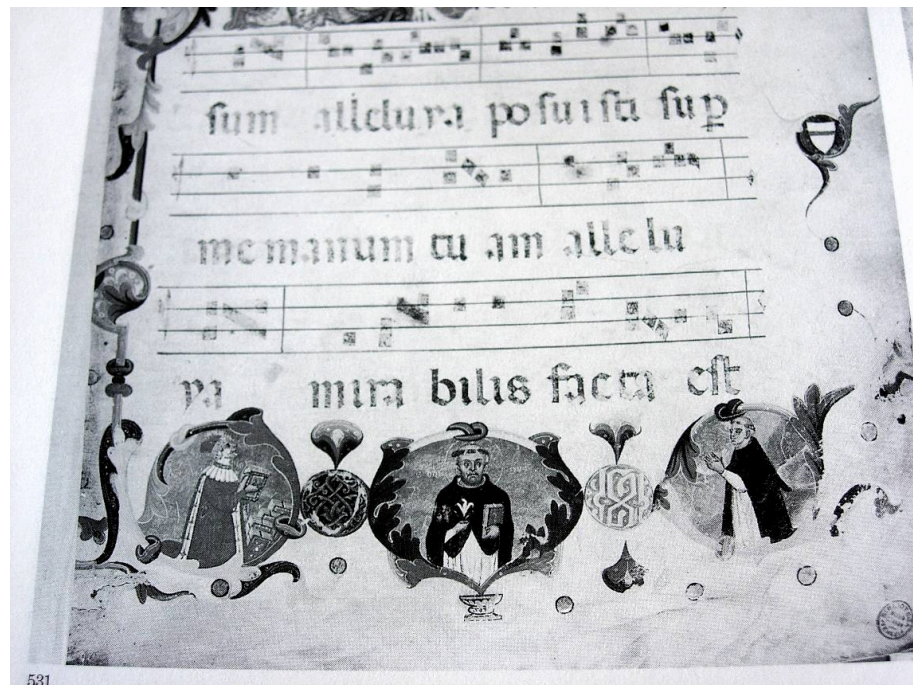 sum alleluya posuisti sup
me manum tu am allelu
ya mira bilis facta est
531